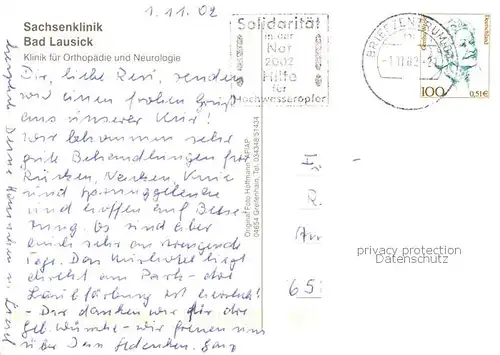 1.11.02
Sachsenklinik
Bad Lausick
Klinik für Orthopädie und Neurologie
Solidarität
in der
Not
2002
Hilfe
für
Hochwasseropfer
BRIEFZENTRUM
-1.11.02
Deutschland
100
0,51€
Dir, liebe Resi, senden
wir einen frohen Gruß
aus unserer Kur!
Wir bekommen sehr
gute Behandlungen für
Rücken, Nacken, Knie
und
und hoffen auf Besse
rung. Es sind aber
auch sehr an
Tage. Das Kurhotel liegt
direkt am Park - die
Laubfärbung ist herrlich!
- Wir danken wir für die
Geb. wünsche - wir freuen uns
über Dein Gedenken. Ganz
herzlich Deine
Original Foto Hoffmann AFIAP
04654 Greifenhain, Tel. 034348/51434
R.
65
privacy protection
Datenschutz